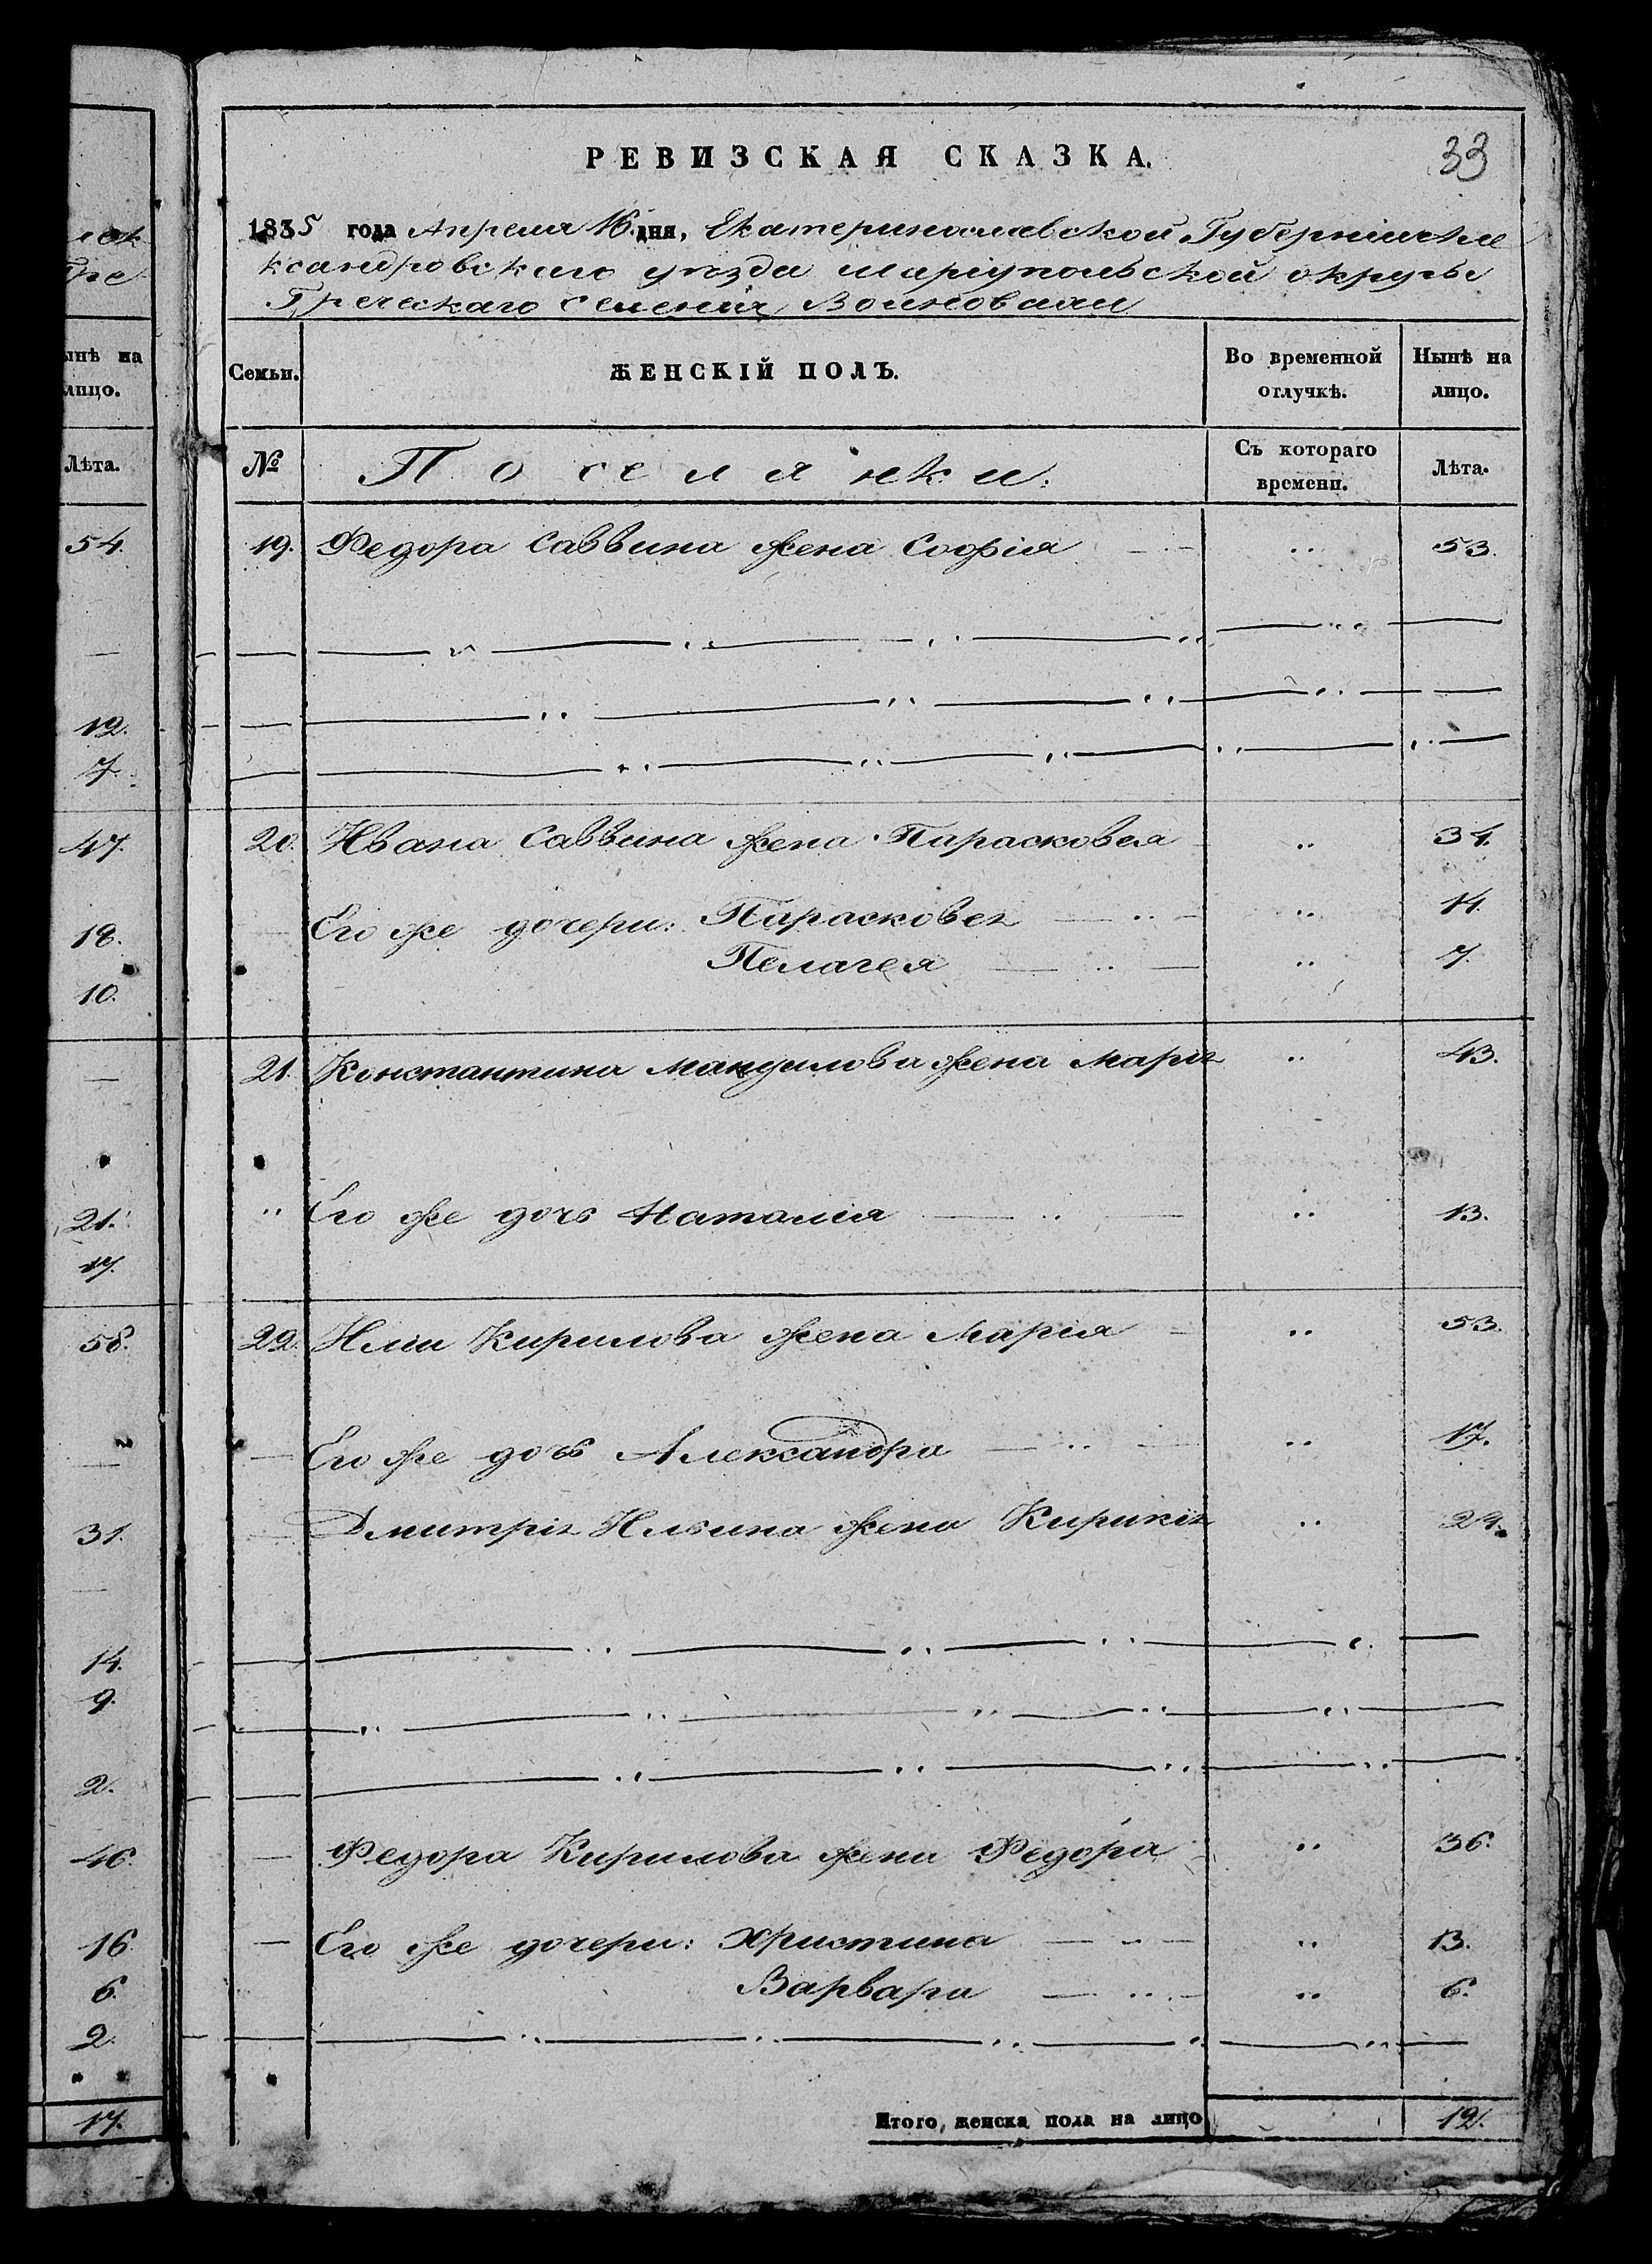 РЕВИЗСКАЯ СКАЗКА.
33
1835 года Апреля 16 дня, Екатеринославской Губерніи Але
ксандровскаго уѣзда Маріупольской округи
Греческаго селенія
Семьи. ЖЕНСКІЙ ПОЛЪ. Во временной отлучкѣ. Нынѣ на лицо.
№ Поселянки. Съ котораго времени. Лѣта.
19. Федора Саввина жена Софія 53.
20. Ивана Саввина жена Парасковея 34.
Его же дочери: Парасковея 14.
Пелагея 7.
21. Константина Мануилова жена Марія 43.
Его же дочь Наталія 13.
22. Иліи Кирилова жена Марія 53.
Его же дочь Александра 17.
Дмитрія Ильина жена
Федора Кирилова жена Федора 36.
Его же дочери: Христина 13.
Варвара 6.
Итого, женска пола на лицо 12.
ынѣ на
лицо.
Лѣта.
54.
12.
7.
47.
18.
10.
21.
17.
58.
31.
14.
9.
2.
46.
16.
6.
2.
17.